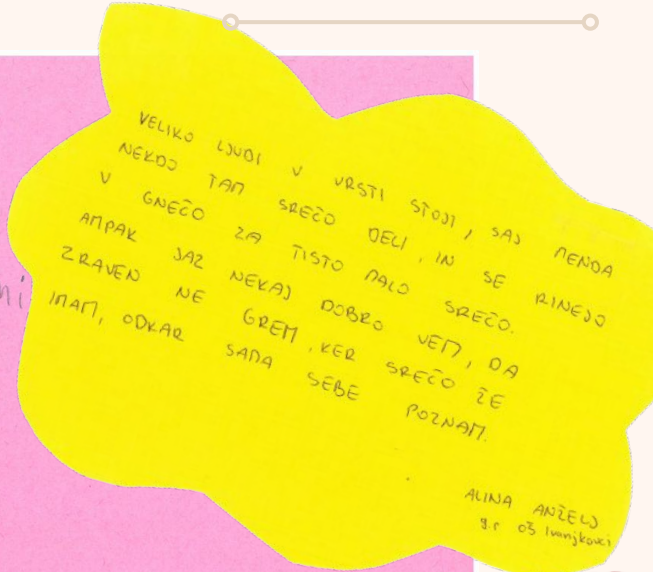 VELIKO LJUDI V VRSTI STOJI, SAJ MENDA
NEKDO TAM SREČO DELI, IN SE RINEJO
V GNEČO ZA TISTO MALO SREČO.
AMPAK JAZ NEKAJ DOBRO VEM, DA
ZRAVEN NE GREM, KER SREČO ŽE
IMAM, ODKAR SAMA SEBE POZNAM.
ALINA ANŽELJ
9.r OŠ Ivanjkovci